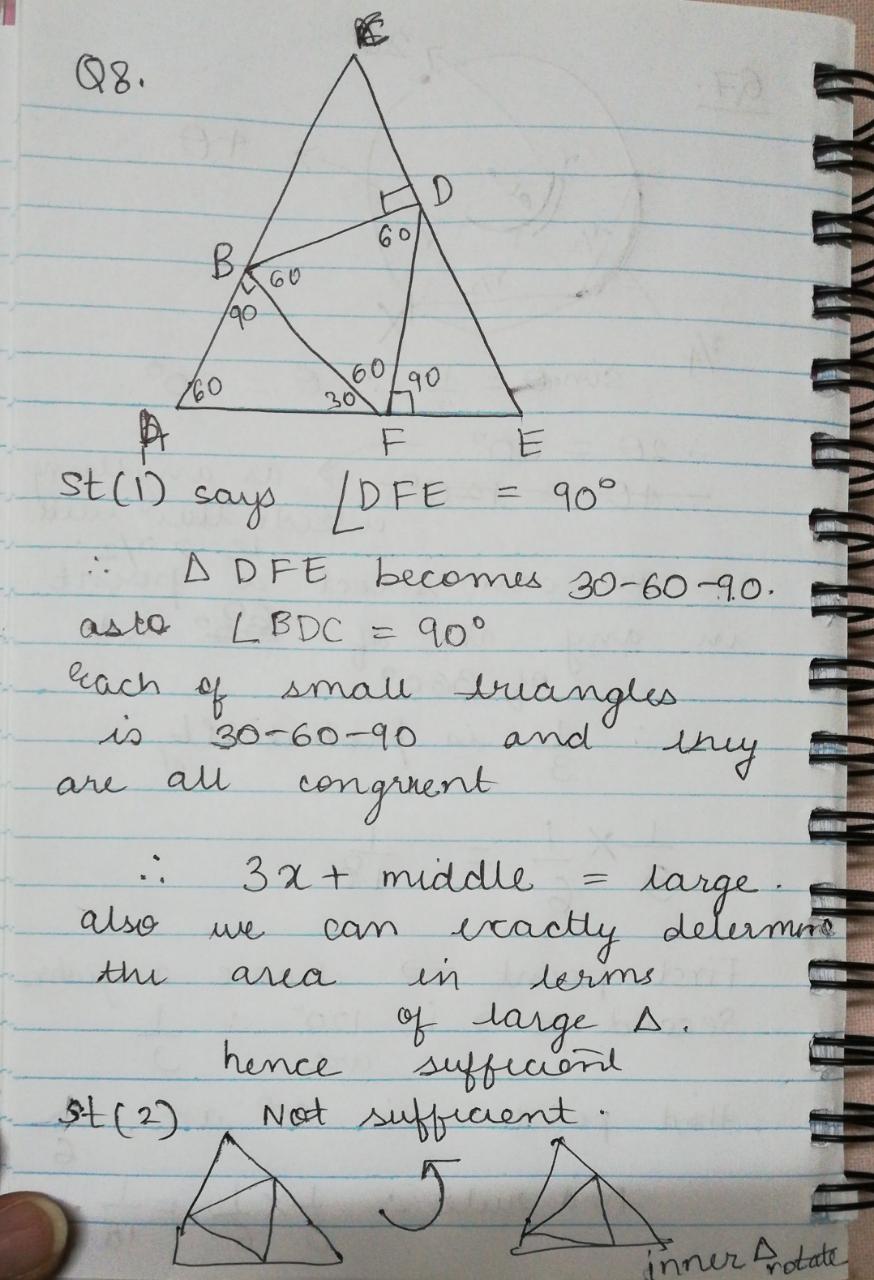 Q8.
C
D
60
B 60
90
60 60 90
30
A F E
St(1) says ∠DFE = 90°
∴ Δ DFE becomes 30-60-90.
∠BDC = 90°
each of small triangles
is 30-60-90 and they
are all congruent
∴ 3x + middle = large.
also we can exactly determine
the area in terms
of large Δ.
hence sufficient
St(2) Not sufficient.
inner Δ rotate